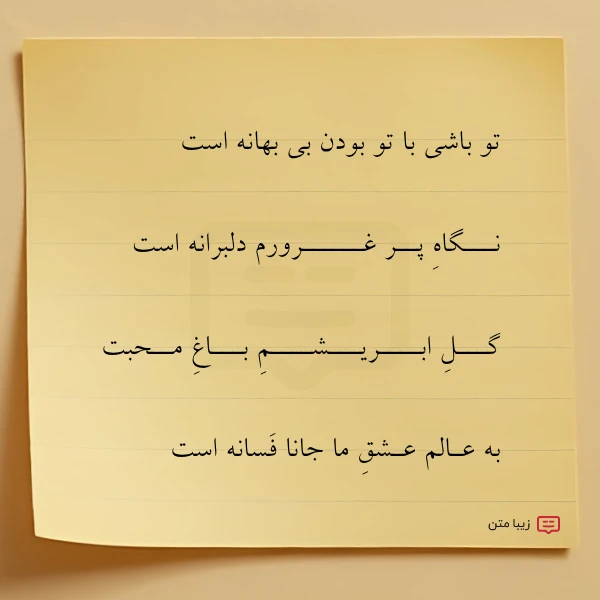 تو باشی با تو بودن بی بهانه است
نـــگاهِ پـــر غــــــرورم دلبرانه است
گــــلِ ابــــریــــشــــمِ بــــاغِ مــحبت
به عــالم عــشقِ ما جانا فَسانه است
زیبا متن